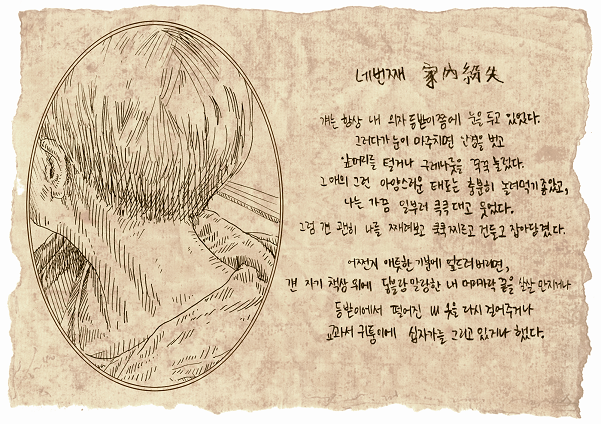 네번째 家內紛失
걔는 항상 내 의자 등받이쯤에 눈을 두고 있었다.
그러다가 눈이 마주치면 안경을 벗고
앞머리를 털거나 구레나룻을 꾹꾹 눌렀다.
그 애의 그런 아양스러운 태도는 충분히 놀려먹기 좋았고,
나는 가끔 일부러 큭큭 대고 웃었다.
그럼 걘 괜히 나를 째려보고 쿡쿡 찌르고 건들고 잡아당겼다.
어쩐지 애틋한 기분에 엎드려버리면,
걘 자기 책상 위에 덤블랑 말랑한 내 머리카락 끝을 살살 만지거나
등받이에서 떨어진 내 옷을 다시 걸어주거나
교과서 귀퉁이에 십자가를 그리고 있거나 했다.